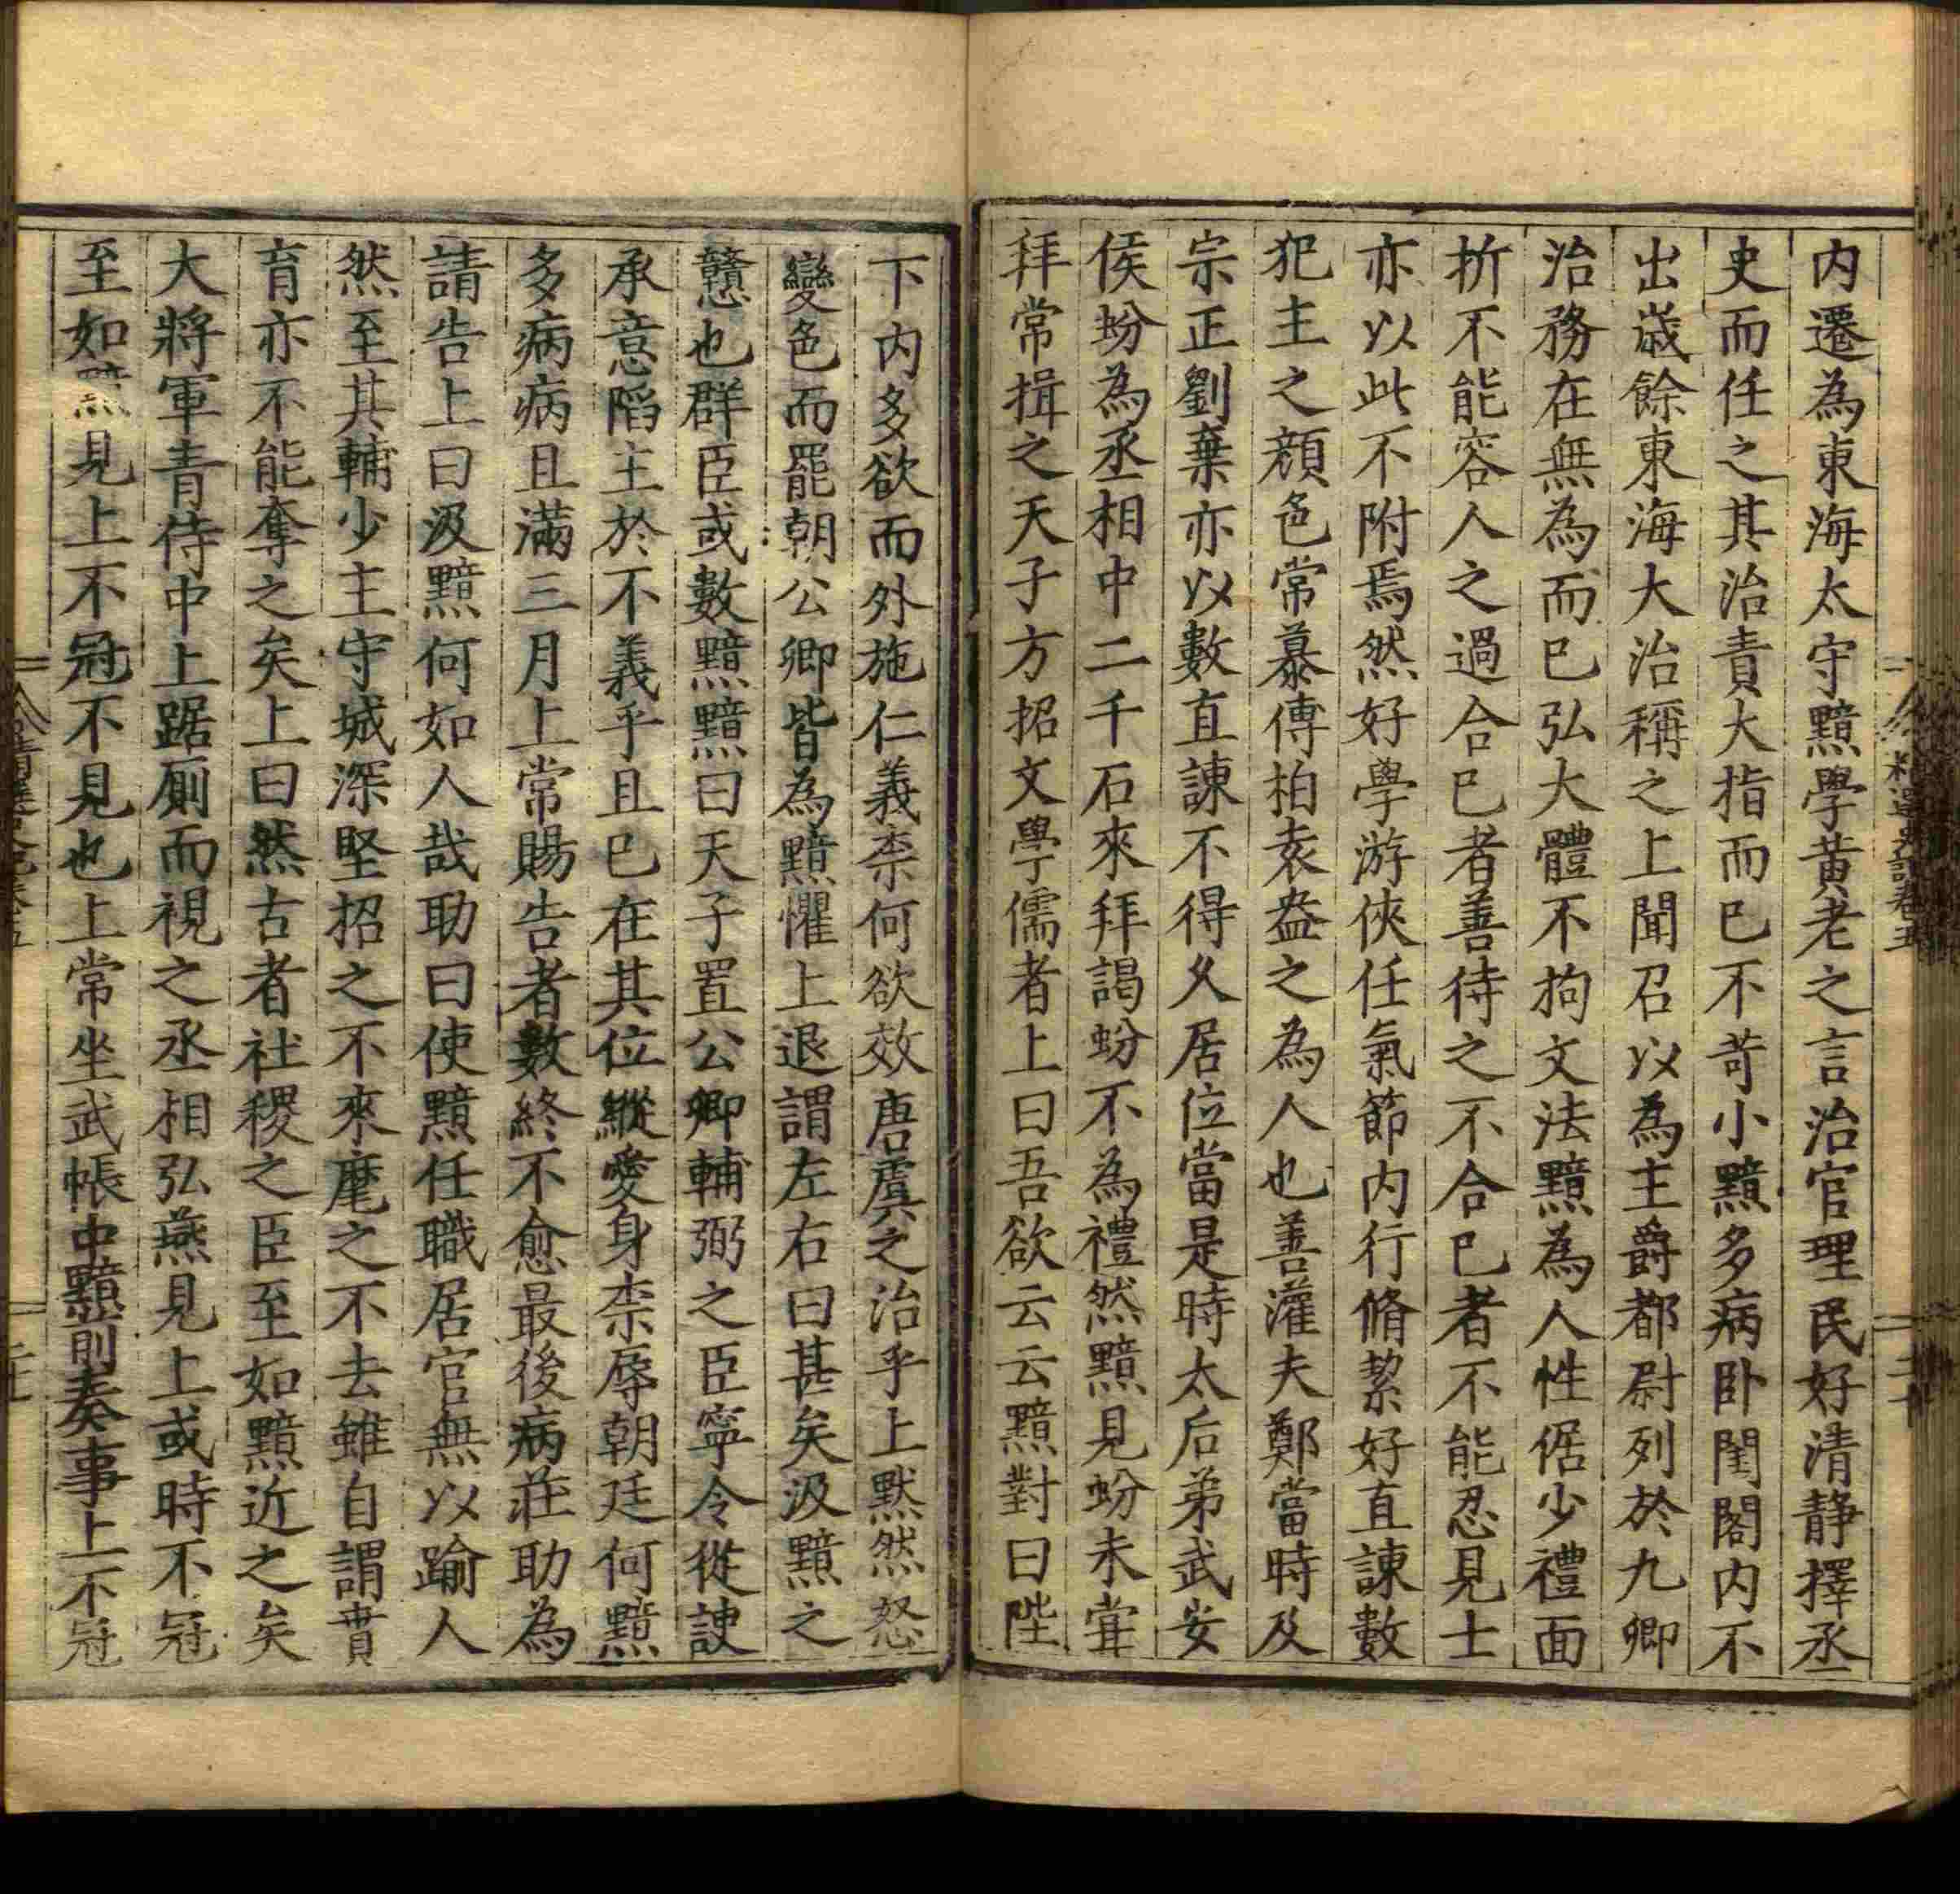 内遷為東海太守黯學黃老之言治官理民好清靜擇丞
史而任之其治責大指而已不苛小黯多病卧閨閤内不
出歲餘東海大治稱之上聞召以為主爵都尉列於九卿
治務在無為而已弘大體不拘文法黯為人性倨少禮面
折不能容人之過合己者善待之不合己者不能忍見士
亦以此不附焉然好學游俠任氣節内行脩潔好直諫數
犯主之顔色常慕傅柏袁盎之為人也善灌夫鄭當時及
宗正劉棄亦以數直諫不得久居位當是時太后弟武安
侯蚡為丞相中二千石來拜謁蚡不為禮然黯見蚡未甞
拜常揖之天子方招文學儒者上曰吾欲云云黯對曰陛
下内多欲而外施仁義柰何欲效唐虞之治乎上默然怒
變色而罷朝公卿皆為黯懼上退謂左右曰甚矣汲黯之
戇也群臣或數黯黯曰天子置公卿輔弼之臣寧令從諛
承意陷主於不義乎且已在其位縱愛身柰辱朝廷何黯
多病病且滿三月上常賜告者數終不愈最後病莊助為
請告上曰汲黯何如人哉助曰使黯任職居官無以踰人
然至其輔少主守城深堅招之不來麾之不去雖自謂賁
育亦不能奪之矣上曰然古者社稷之臣至如黯近之矣
大將軍青侍中上踞厠而視之丞相弘燕見上或時不冠
至如黯見上不冠不見也上常坐武帳中黯前奏事上不冠